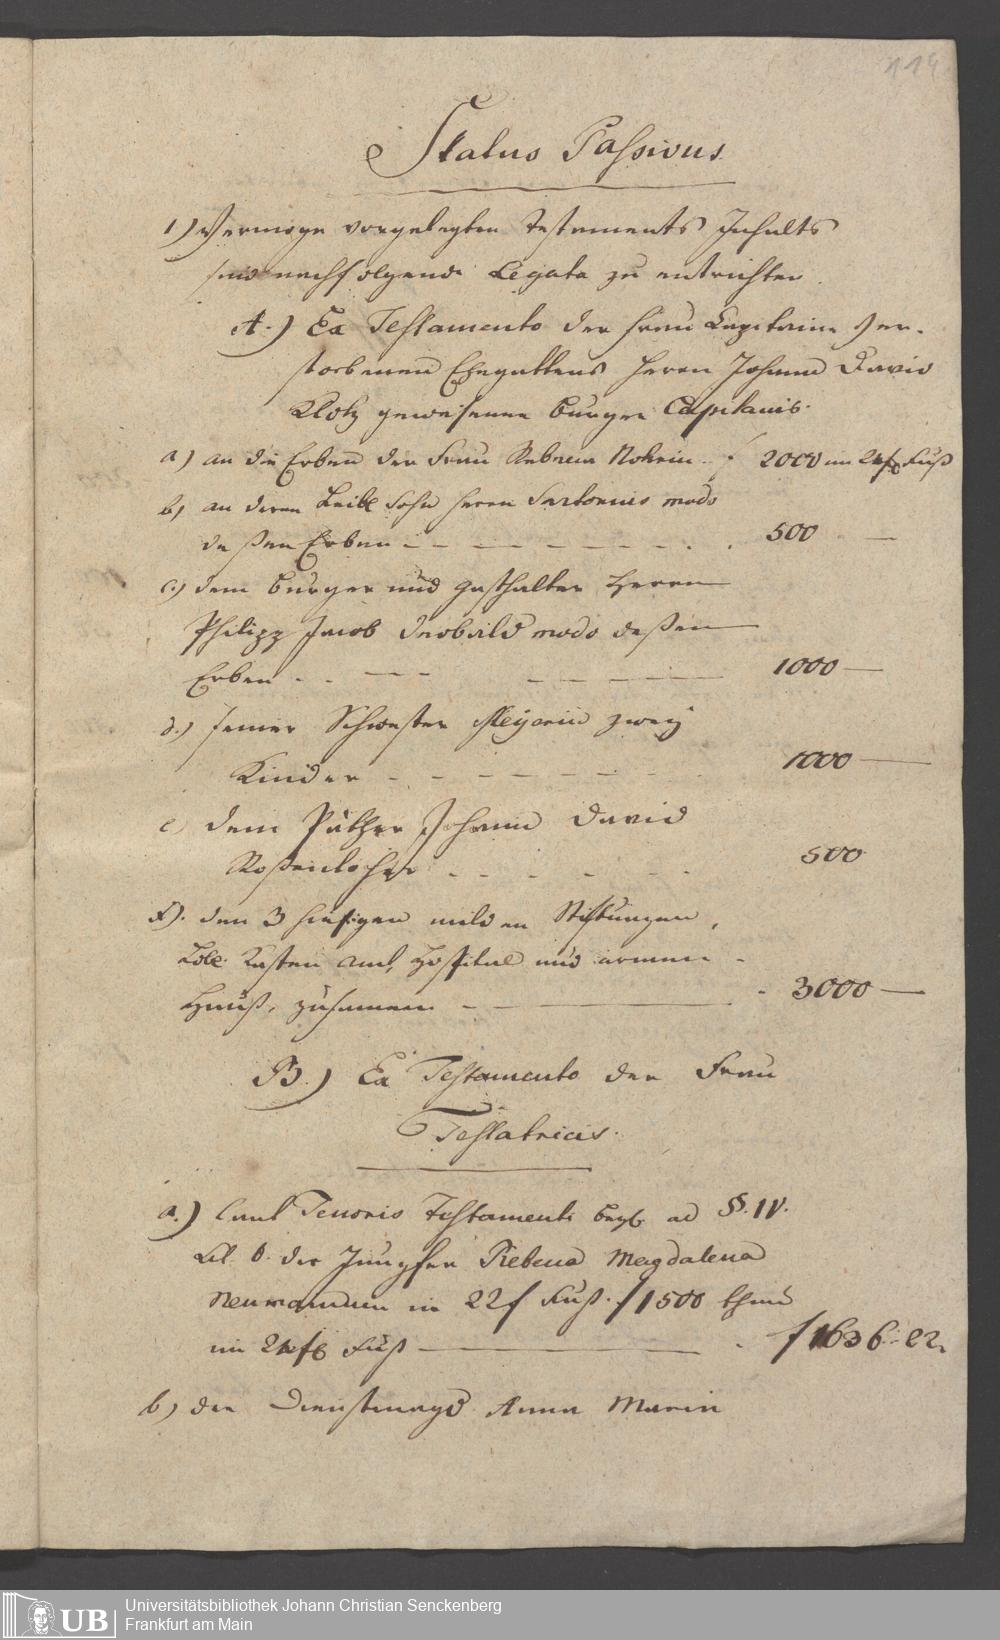 119
Status Passivus
1) Vermoge vorgelegten Testaments Inhalts
sind nachfolgende Legata zu entrichten
A.) Ex Testamento der Frau Capitainin ver-
storbenen Ehegattens Herrn Johann David
Klotz gewesenen Burger Capitains.
a) an die Erben der Frau Rebecca 2000 im 24f Fuß
b) an deren Leibl Sohn Herrn Sartorius modo
deßen Erben 500 —
c.) dem Burger und Gasthalter Herrn
Philipp Jacob modo deßen
Erben 1000 —
d.) seiner Schwester Meyerin zwey
Kinder 1000 —
e) dem Päthgen Johann David
Roßenlocher 500
f). den 3 hiesigen milden Stiftungen,
Löbl. Kasten Amt, Hospital und armen
Hauß, zusammen 3000 —
B.) Ex Testamento der Frau
Testatricis.
a.) laut Tenoris Testamenti ad §. IV.
Lit. b. der Jungfer Rebecca Magdalena
Neumannin in 22f Fuß. f 1500 thun
im 24f Fuß — f 1636. 22.
b) der Dienstmagd Anna Maria
UB Universitätsbibliothek Johann Christian Senckenberg
Frankfurt am Main